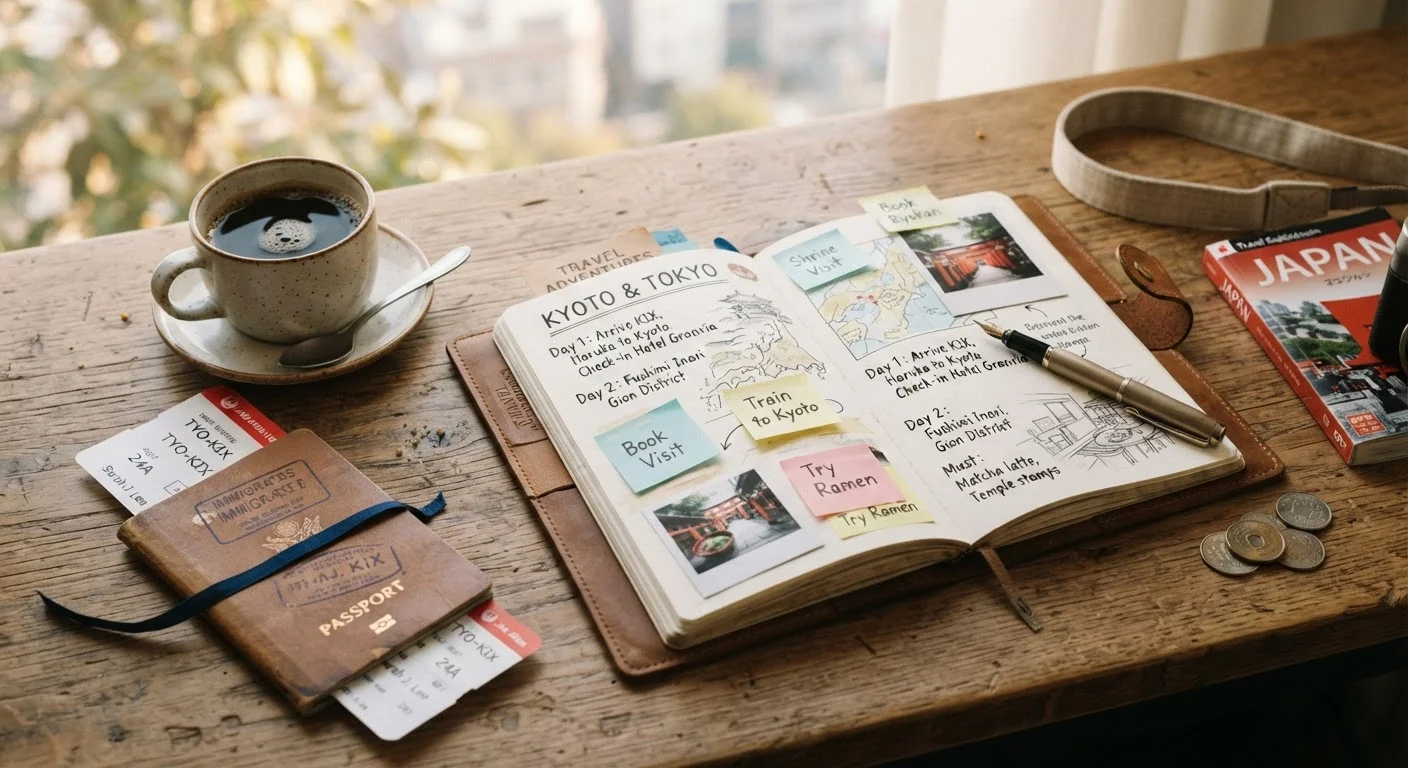 TRAVEL
ADVENTURES
KYOTO & TOKYO
Day 1: Arrive KIX,
Haruka to Kyoto
Check-in Hotel Granvia
Day 2: Fushimi Inari
Gion District
Train
to Kyoto
Book
Visit
Try
Ramen
Try Ramen
Shrine
Visit
Book
Day 1: Arrive KIX,
Haruka to Kyoto
Check-in Hotel Granvia
Day 2:
Fushimi Inari,
Gion District
Must:
Matcha latte,
Temple stamps
JAPAN
JAPAN
TYO-KIX
TYO-KIX
24A
KIX
PASSPORT
TYO-KIX
24A